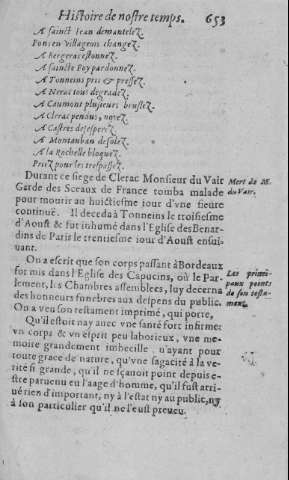 Histoire de nostre temps. 653
A sainct Iean demantelez.
Pons en villageois changez.
A Bergerac estonnez.
A saincte Foy pardonnez.
A Tonneins pris & pressez.
A Nerac tous degradez.
A Caumont plusieurs bruslez.
A Clerac pendus, noyez.
A Castres desesperez
A Montauban desolez.
A la Rochelle bloquez.
Priez pour les trespassez.
Durant ce siege de Clerac Monsieur du Vair
Mort de M. du Vair.
Garde des Sceaux de France tomba malade
pour mourir au huictiesme iour d'vne fieure
continuë. Il deceda à Tonneins le troisiesme
d'Aoust & fut inhumé dans l'Eglise des Benar-
dins de Paris le trentiesme iour d'Aoust ensui-
uant.
On a escrit que son corps passant à Bordeaux
fut mis dans l'Eglise des Capucins, où le Par-
Les princi-
lement, les Chambres assemblees, luy decerna
paux points
des honneurs funebres aux despens du public.
de son testa-
On a veu son testament imprimé, qui porte,
ment.
Qu'il estoit nay auec vne santé fort infirme:
vn corps & vn esprit peu laborieux, vne me-
moire grandement imbecille, n'ayant pour
toute grace de nature, qu'vne sagacité à la ve-
rité si grande, qu'il ne sçauoit point depuis e-
stre paruenu en l'aage d'homme, qu'il fust arri-
ué rien d'important, ny à l'estat ny au public, ny
à son particulier qu'il ne l'eust preueu.